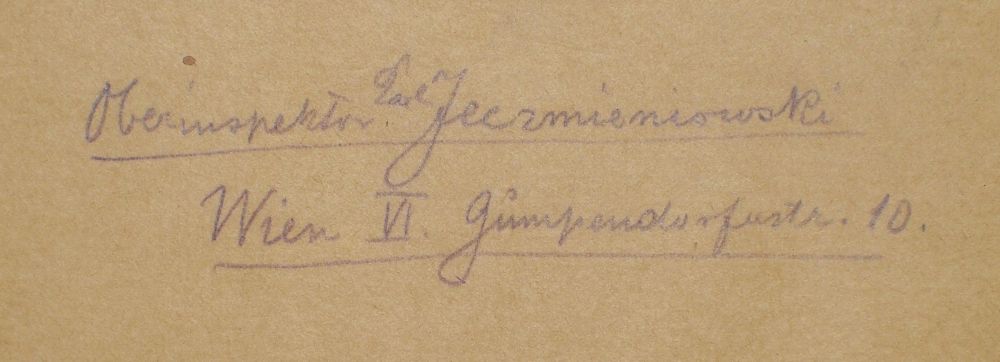 Oberinspektor Karl Jeczmieniowski
Wien VI. Gumpendorferstr. 10.